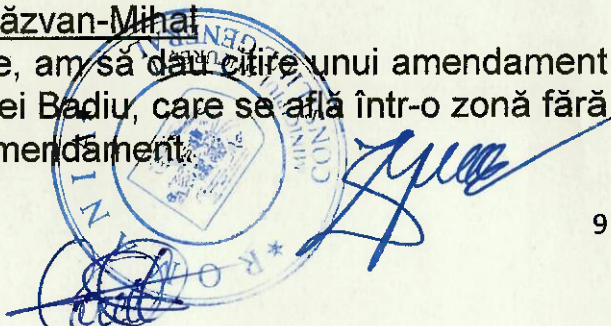 ăzvan-Mihai
e, am să dau citire unui amendament
ei Badiu, care se află într-o zonă fără
mendament.
9
ROMÂNIA